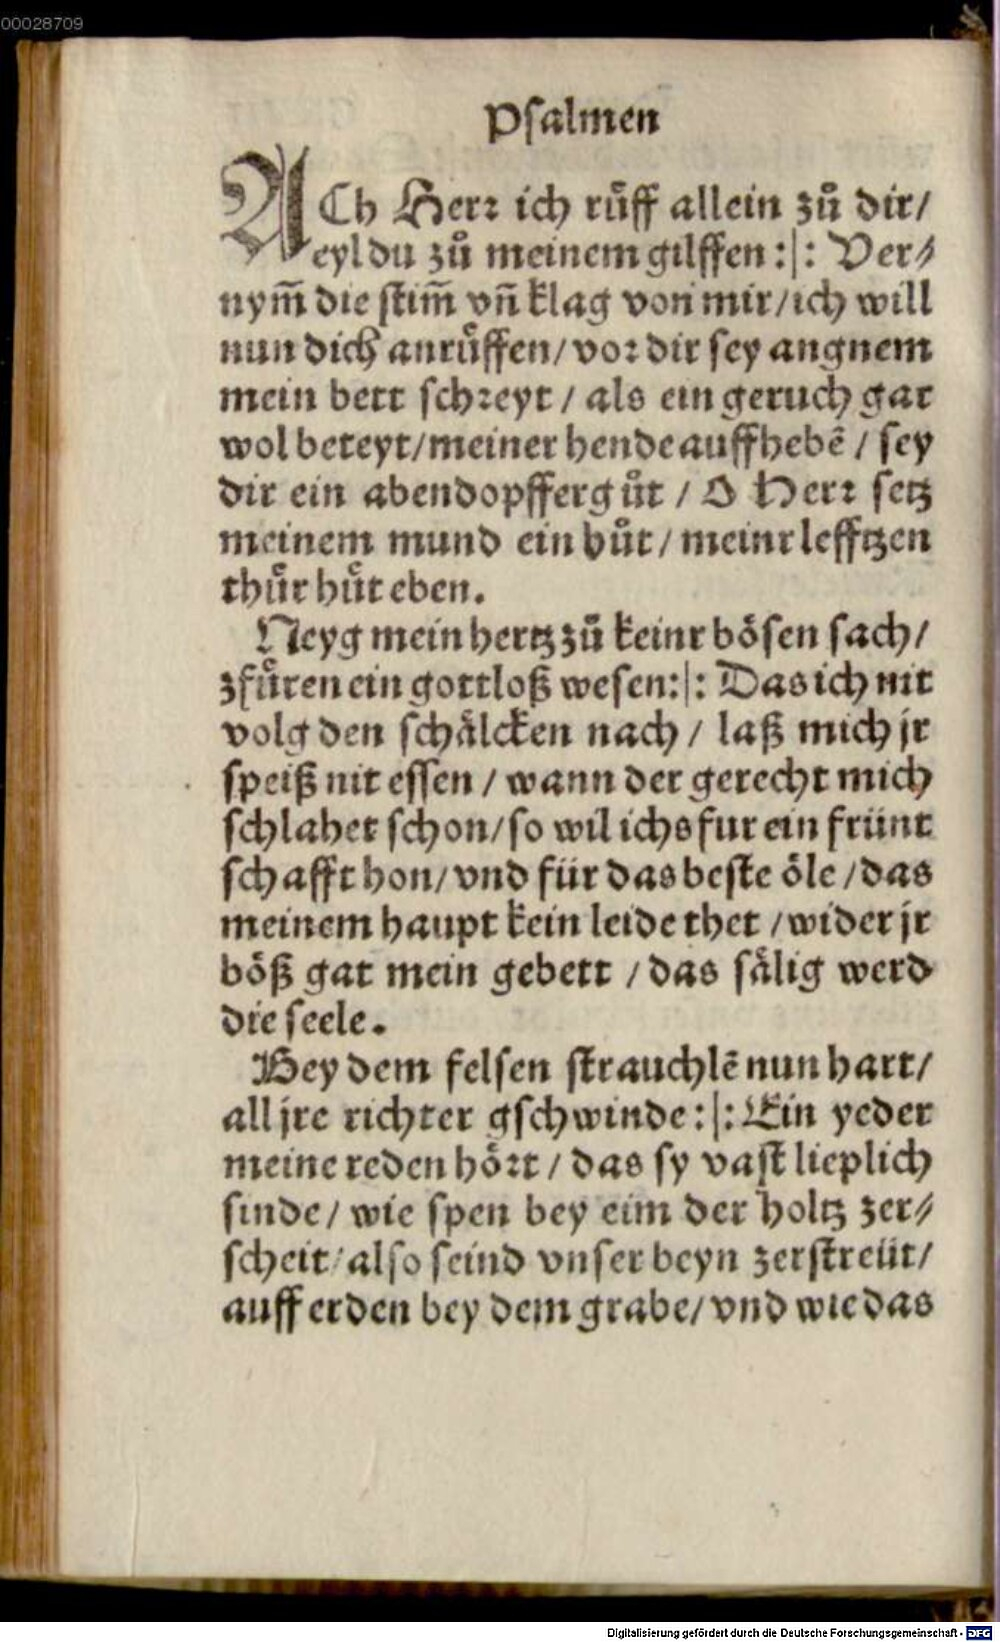 00028709
Psalmen
ACh Herr ich růff allein zů dir/
eyl du zů meinem gilffen :|: Ver⸗
nym̃ die stim̃ vñ klag von mir/ich will
nun dich anrůffen/vor dir sey angnem
mein bett schreyt / als ein geruch gar
wol bereyt/meiner hende auffhebẽ / sey
dir ein abendopffer gůt / O Herr setz
meinem mund ein hůt / meinr lefftzen
thür hüt eben.
Neyg mein hertz zů keinr bösen sach/
zfüren ein gottloß wesen:|: Das ich nit
volg den schälcken nach / laß mich jr
speiß nit essen / wann der gerecht mich
schlahet schon/so wil ichs fur ein frünt
schafft hon/ vnd für das beste öle /das
meinem haupt kein leide thet /wider jr
böß gat mein gebett /das sälig werd
die seele.
Bey dem felsen strauchlẽ nun hart/
all jre richter gschwinde:|: Ein yeder
meine reden hört / das sy vast lieplich
sinde/ wie spen bey eim der holtz zer⸗
scheit/also seind vnser beyn zerstreüt/
auff erden bey dem grabe/ vnd wie das
Digitalisierung gefördert durch die Deutsche Forschungsgemeinschaft - DFG